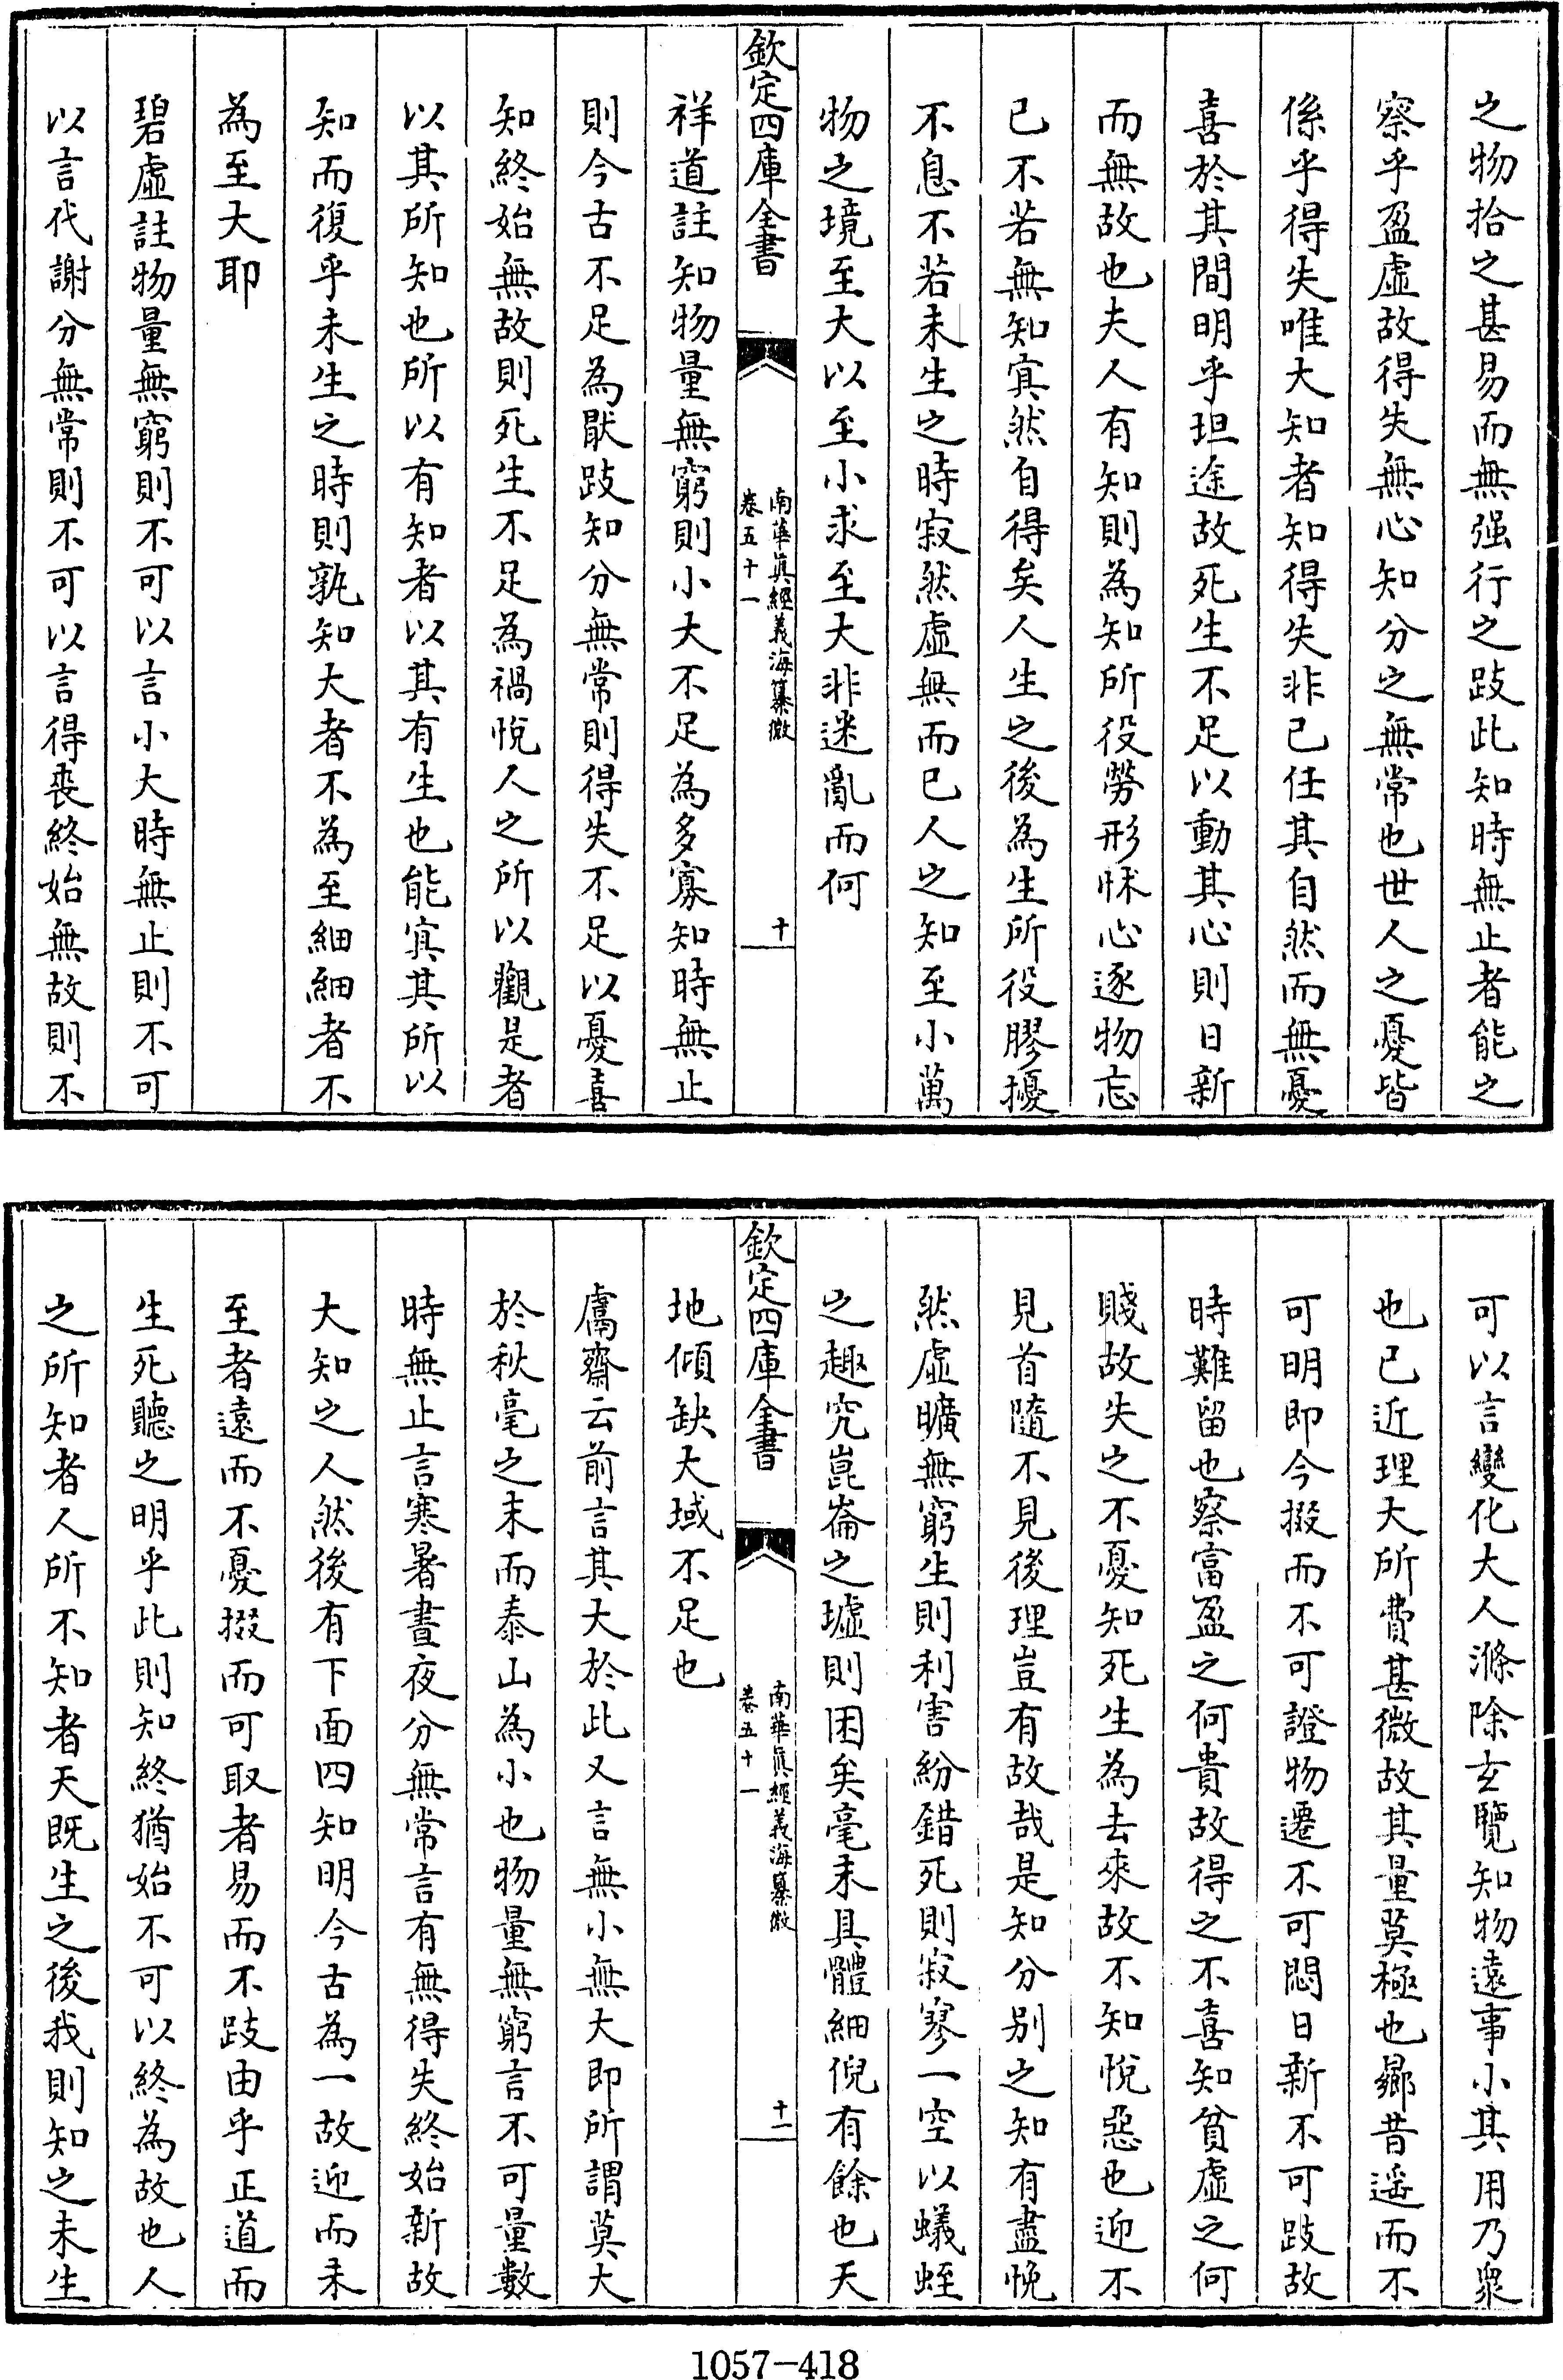 之物拾之甚易而無强行之跂此知時無止者能之
察乎盈虛故得失無心知分之無常也世人之憂皆
係乎得失唯大知者知得失非己任其自然而無憂
喜於其間明乎坦途故死生不足以動其心則日新
而無故也夫人有知則為知所役勞形怵心逐物忘
已不若無知寘然自得矣人生之後為生所役膠擾
不息不若未生之時寂然虛無而已人之知至小萬
物之境至大以至小求至大非迷亂而何
欽定四庫全書
南華真經義海纂微
卷五十一
十
祥道註知物量無窮則小大不足為多寡知時無止
則今古不足為厭跂知分無常則得失不足以憂喜
知終始無故則死生不足為禍悅人之所以觀是者
以其所知也所以有知者以其有生也能寘其所以
知而復乎未生之時則孰知大者不為至細細者不
為至大耶
碧虛註物量無窮則不可以言小大時無止則不可
以言代謝分無常則不可以言得喪終始無故則不
可以言變化大人滌除玄覽知物遠事小其用乃衆
也已近理大所費甚微故其量莫極也曏昔遥而不
可明即今掇而不可證物遷不可悶日新不可跂故
時難留也察富盈之何貴故得之不喜知貧虛之何
賤故失之不憂知死生為去來故不知悅惡也迎不
見首隨不見後理豈有故哉是知分别之知有盡恍
然虛曠無窮生則利害紛錯死則寂寥一空以蟻蛭
之趣究崑崙之墟則困矣毫末具體細倪有餘也天
欽定四庫全書
南華真經義海纂微
卷五十一
十一
地傾缺大域不足也
鬳齋云前言其大於此又言無小無大即所謂莫大
於秋毫之末而泰山為小也物量無窮言不可量數
時無止言寒暑晝夜分無常言有無得失終始新故
大知之人然後有下面四知明今古為一故迎而未
至者遠而不憂掇而可取者易而不跂由乎正道而
生死聽之明乎此則知終猶始不可以終為故也人
之所知者人所不知者天既生之後我則知之未生
1057-418